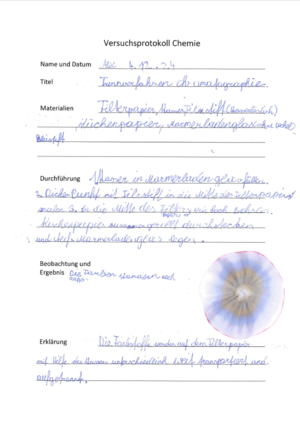 Versuchsprotokoll Chemie
Name und Datum Abc 4.12.24
Titel Trennverfahren chromatographie
Materialien Filterpapier, Filzstift (Wasserlöslich)
Küchenpapier, Marmeladenglas
Bleistift
Durchführung in Marmeladenglas füllen.
2. Dicker Punkt mit Filzstift in die Mitte des Filterpapiers
malen 3. In die Mitte des Filter ein Loch bohren.
Küchenpapier durchstecken
und aufs Marmeladenglas legen.
Beobachtung und
Ergebnis Die Farben nach
Erklärung Die Farbstoffe werden auf dem Filterpapier
mit Hilfe des Wassers unterschiedlich weit transportiert und
aufgetrennt.